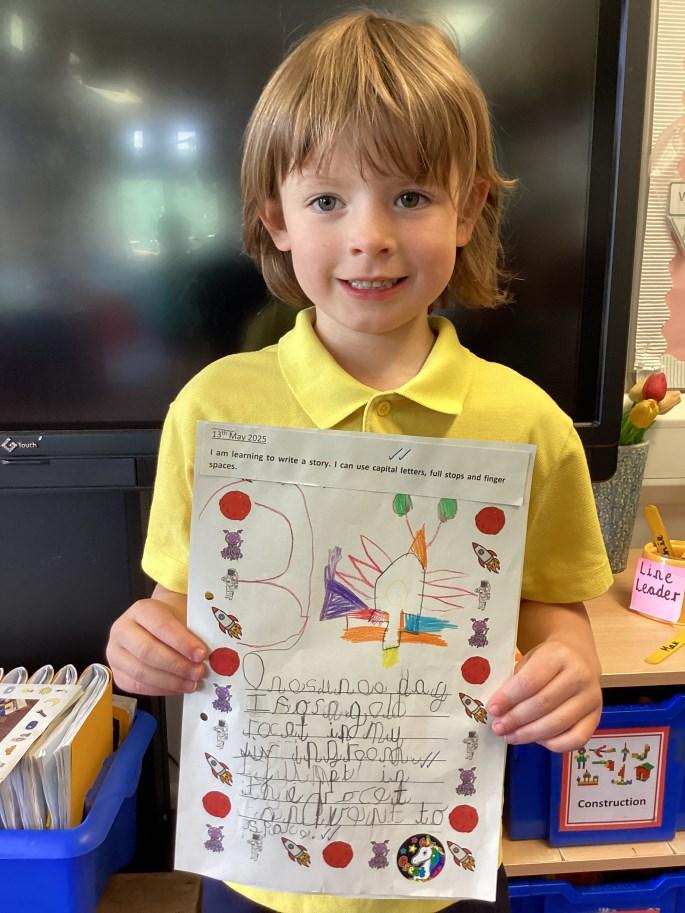 13th May 2025
I am learning to write a story. I can use capital letters, full stops and finger
spaces.
One sunee day
I sor a gold
rocet in my
in
the rocet
and went to
space.
Touch
Line
Leader
Construction